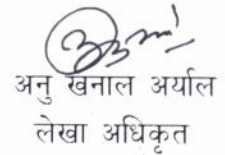 अनु खनाल अर्याल
लेखा अधिकृत